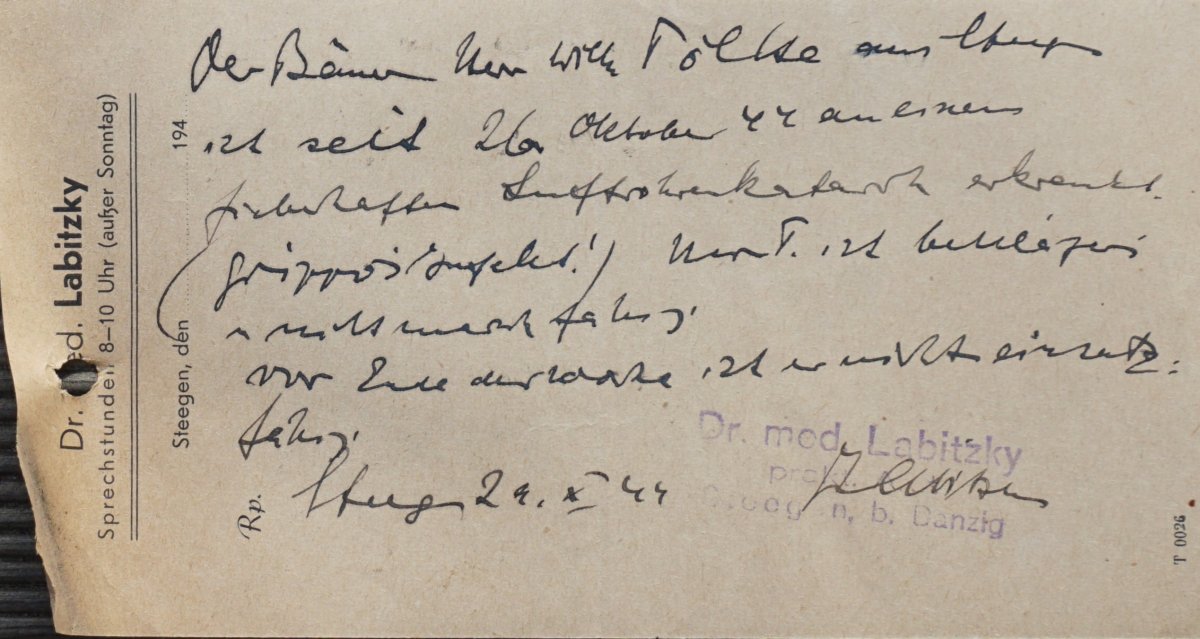 Dr. med. Labitzky
Sprechstunden 8–10 Uhr (außer Sonntag)
Steegen, den 194
Der Herr Wilh. Töltke aus
ist seit 26. Oktober 44 an einem
fieberhaften Luftröhrenkatarrh erkrankt.
(grippöser Infekt!) Herr T. ist bettlägerig
u. nicht marschfähig.
Vor Ende der Woche ist er nicht einsatz-
fähig.
29. X 44
Rp.
Dr. med. Labitzky
prakt.
Steegen, b. Danzig
T 0026